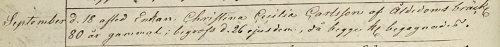 September d. 18 afled Enkan. Christina Cecilia Carlsson af Aldedoms bräcka
80 år gammal; begrofs d. 26 ejusdem, då begge kl begagnades.